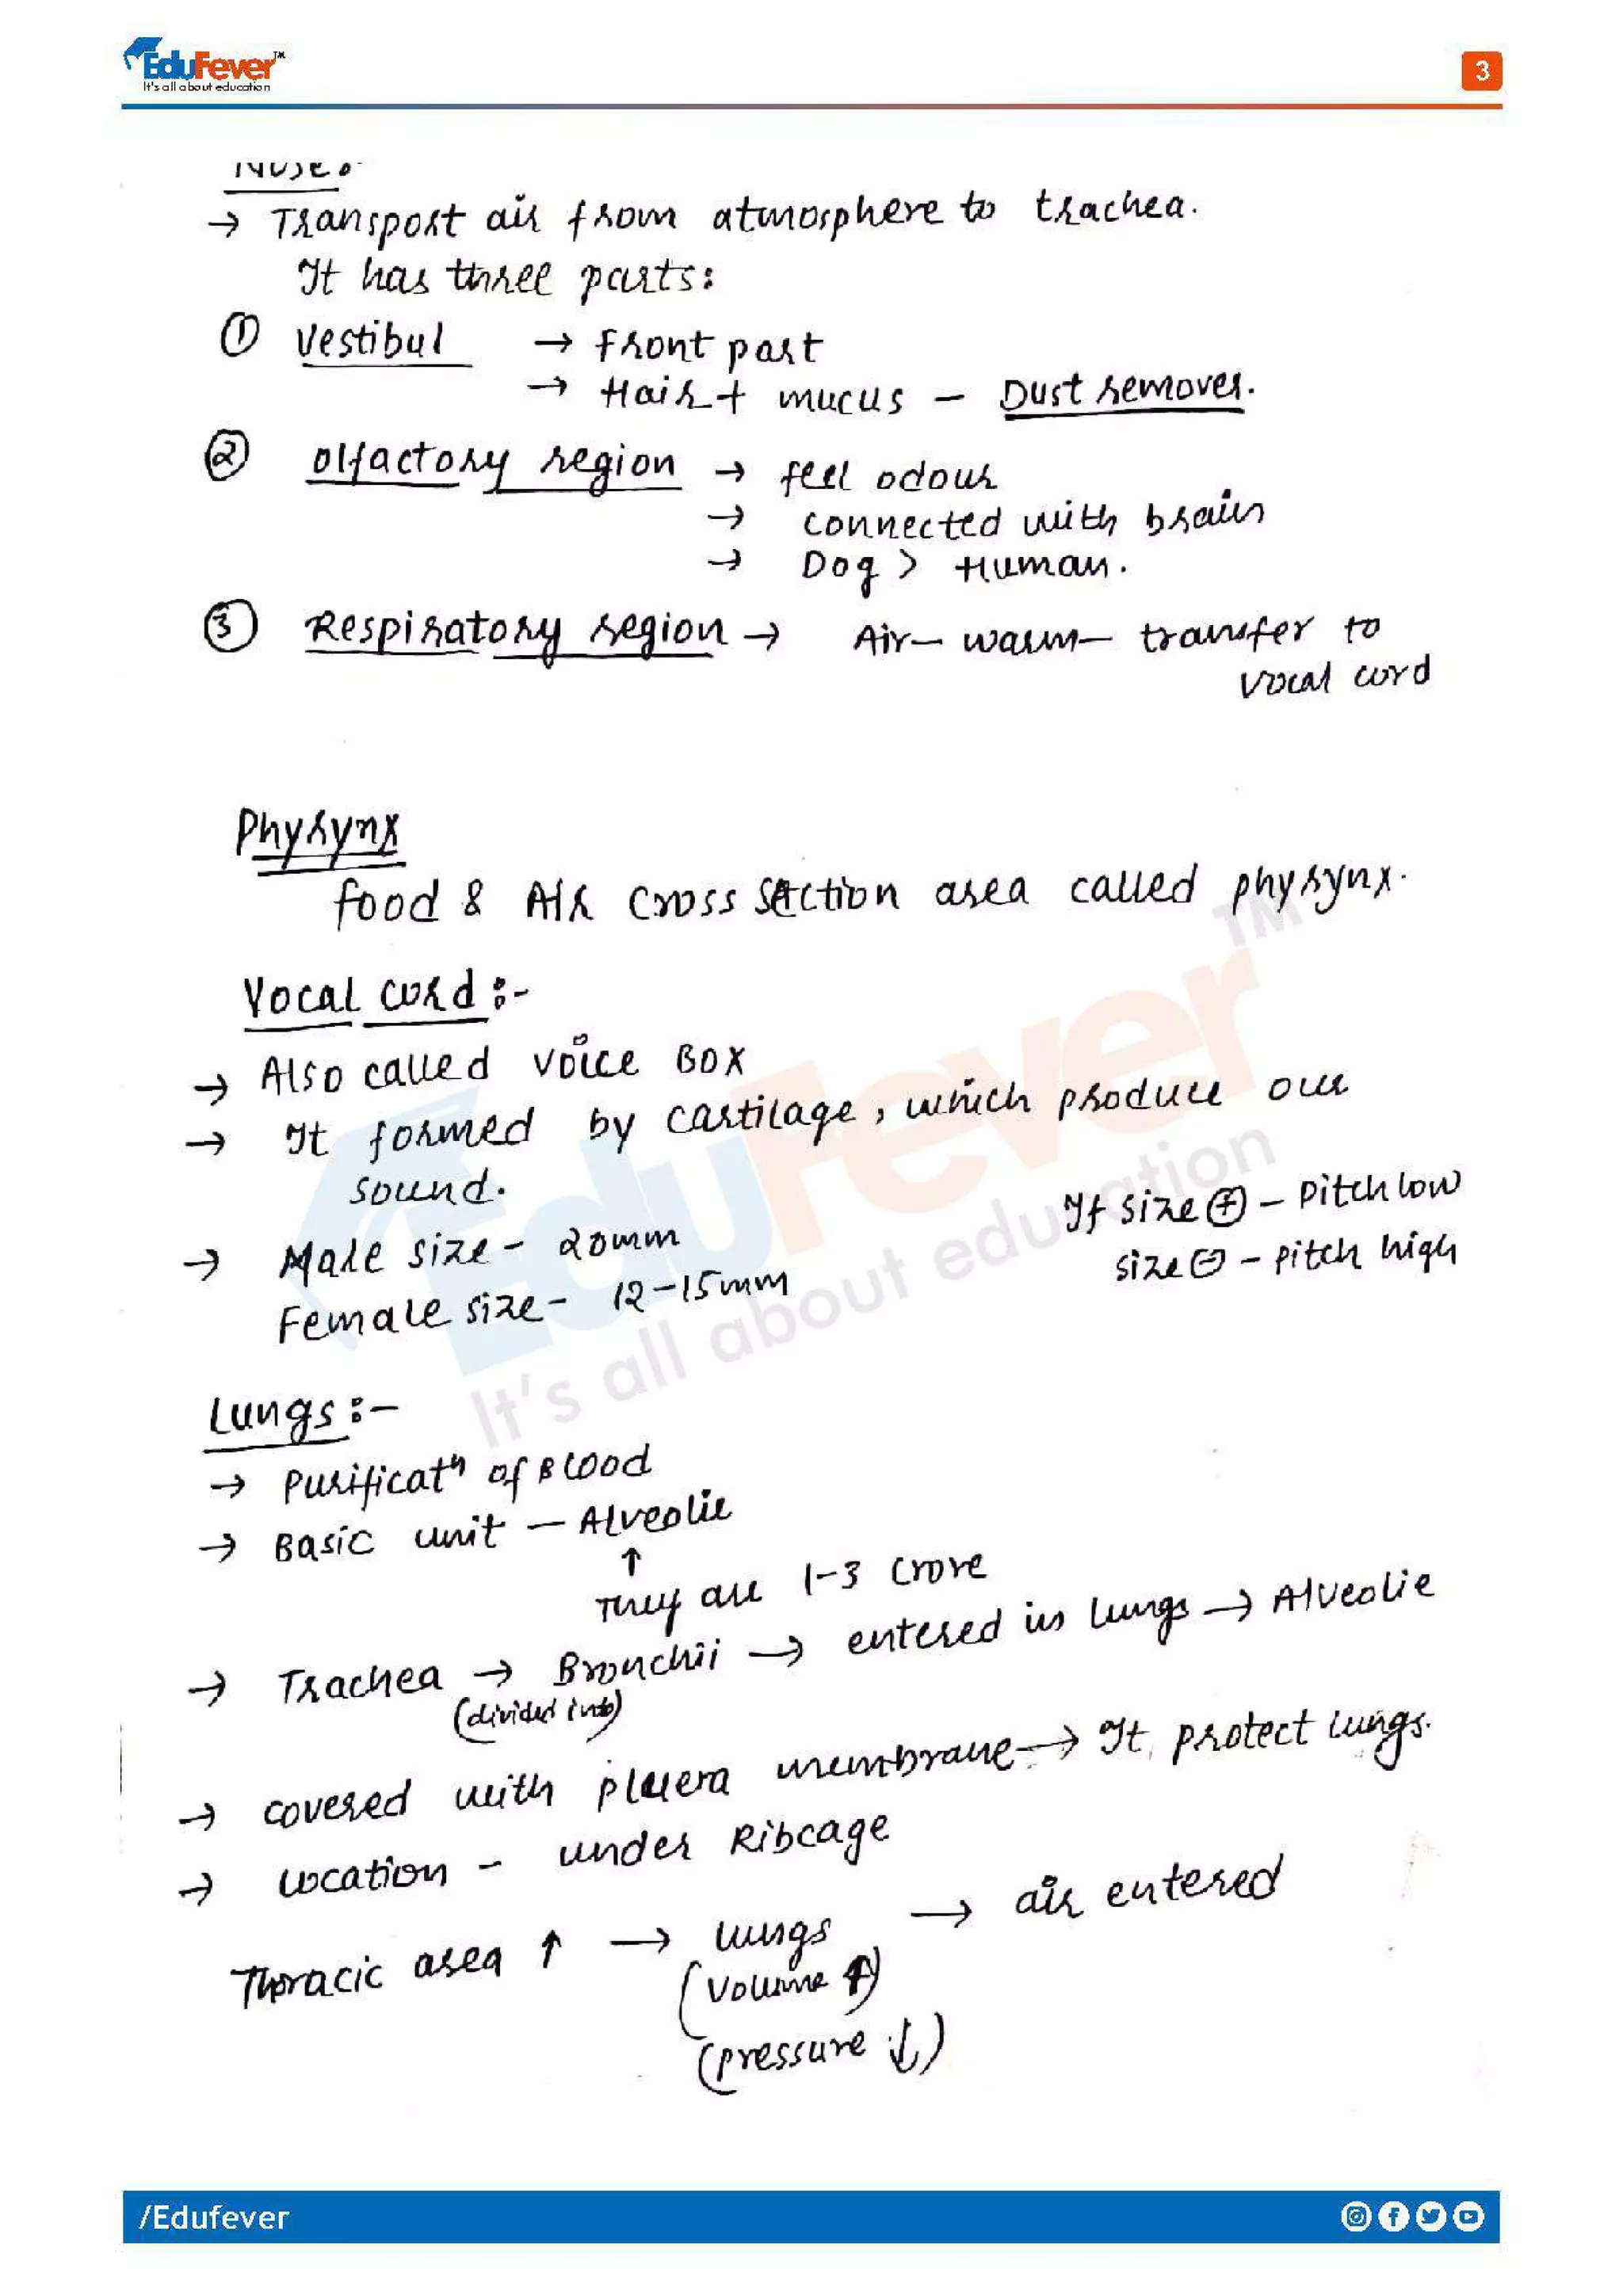 EduFever™
It's all about education
3
Nose:-
→ Transport air from atmosphere to trachea.
It has three parts:
① Vestibul → front part
→ Hair + mucus – Dust remover.
② olfactory region → feel odour
→ connected with brain
→ Dog > Human.
③ Respiratory region → Air – warm – transfer to
vocal cord
Phyrynx
food & Air Cross section area called phyrynx.
Vocal cord :-
→ Also called voice Box
→ It formed by cartilage, which produce our
sound.
→ Male size - 20mm
If size ⊕ – Pitch low
Female size - 12-15mm
size ⊖ – Pitch high
Lungs :-
→ Purificatⁿ of Blood
→ Basic unit – Alveolie
↑
They are 1-3 crore
→ Trachea → Bronchii → entered in lungs → Alveolie
(divided into)
→ covered with pluera membrane → It protect lungs.
→ location - under Ribcage
Thoracic area ↑ → lungs → air entered
(Volume ↑)
(pressure ↓)
EduFever™
It's all about education
/Edufever